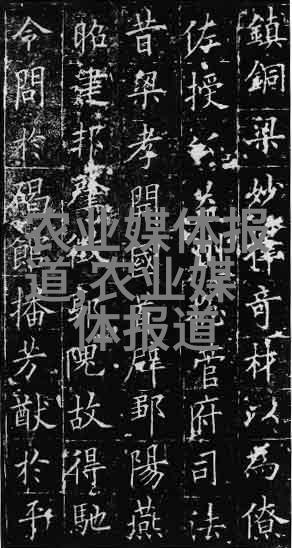 鎮銅梁妙擇奇材以為僚
佐授公益州總管府司法
昔梁孝開國首辟鄒陽燕
昭建邦肇徵郭隗故得馳
令問於碣館播芳猷於平
农业媒体报
道 农业媒
体报道